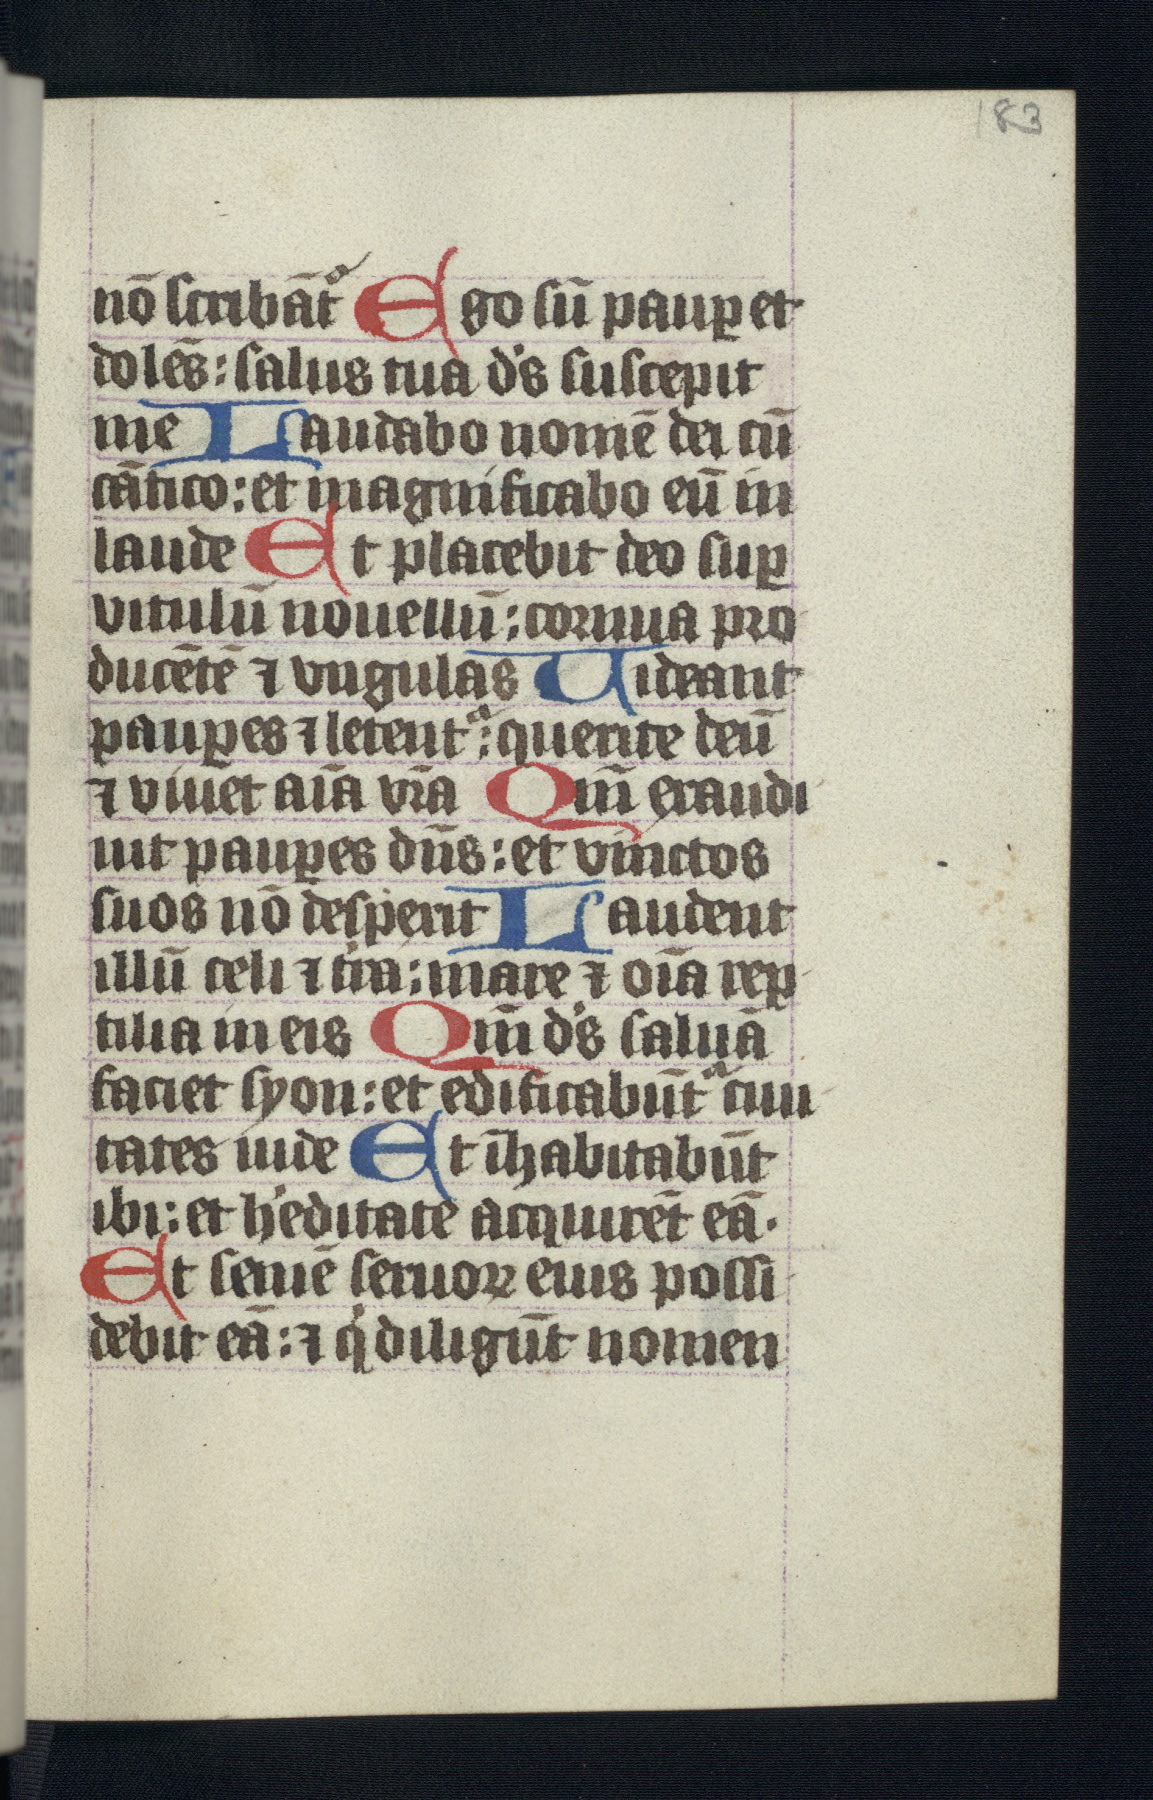 183
nō scribāt᷑ Ego sū pauꝑ et
dolēs: salus tua d's suscepit
me Laudabo nomē dei cū
cātico: et magnificabo eū in
laude Et placebit deo suꝑ
vitulū nouellū: cornua pro
ducētē ⁊ vngulas Uideant
pauꝑes ⁊ letent᷑: querite deū
⁊ viuet aīa vrā Qm̄ exaudi
uit pauꝑes dn̄s: et vinctos
suos nō desperit Laudent
illū celi ⁊ t'ra: mare ⁊ oīa reꝑ
tilia in eis Qm̄ d's saluā
faciet syon: et edificabūt᷑ ciui
tates iude Et īhabitabūt
ibi: et h'editatē acquirēt eā.
Et semē seruoꝝ eius possi
debit eā: ⁊ q' diligūt nomen